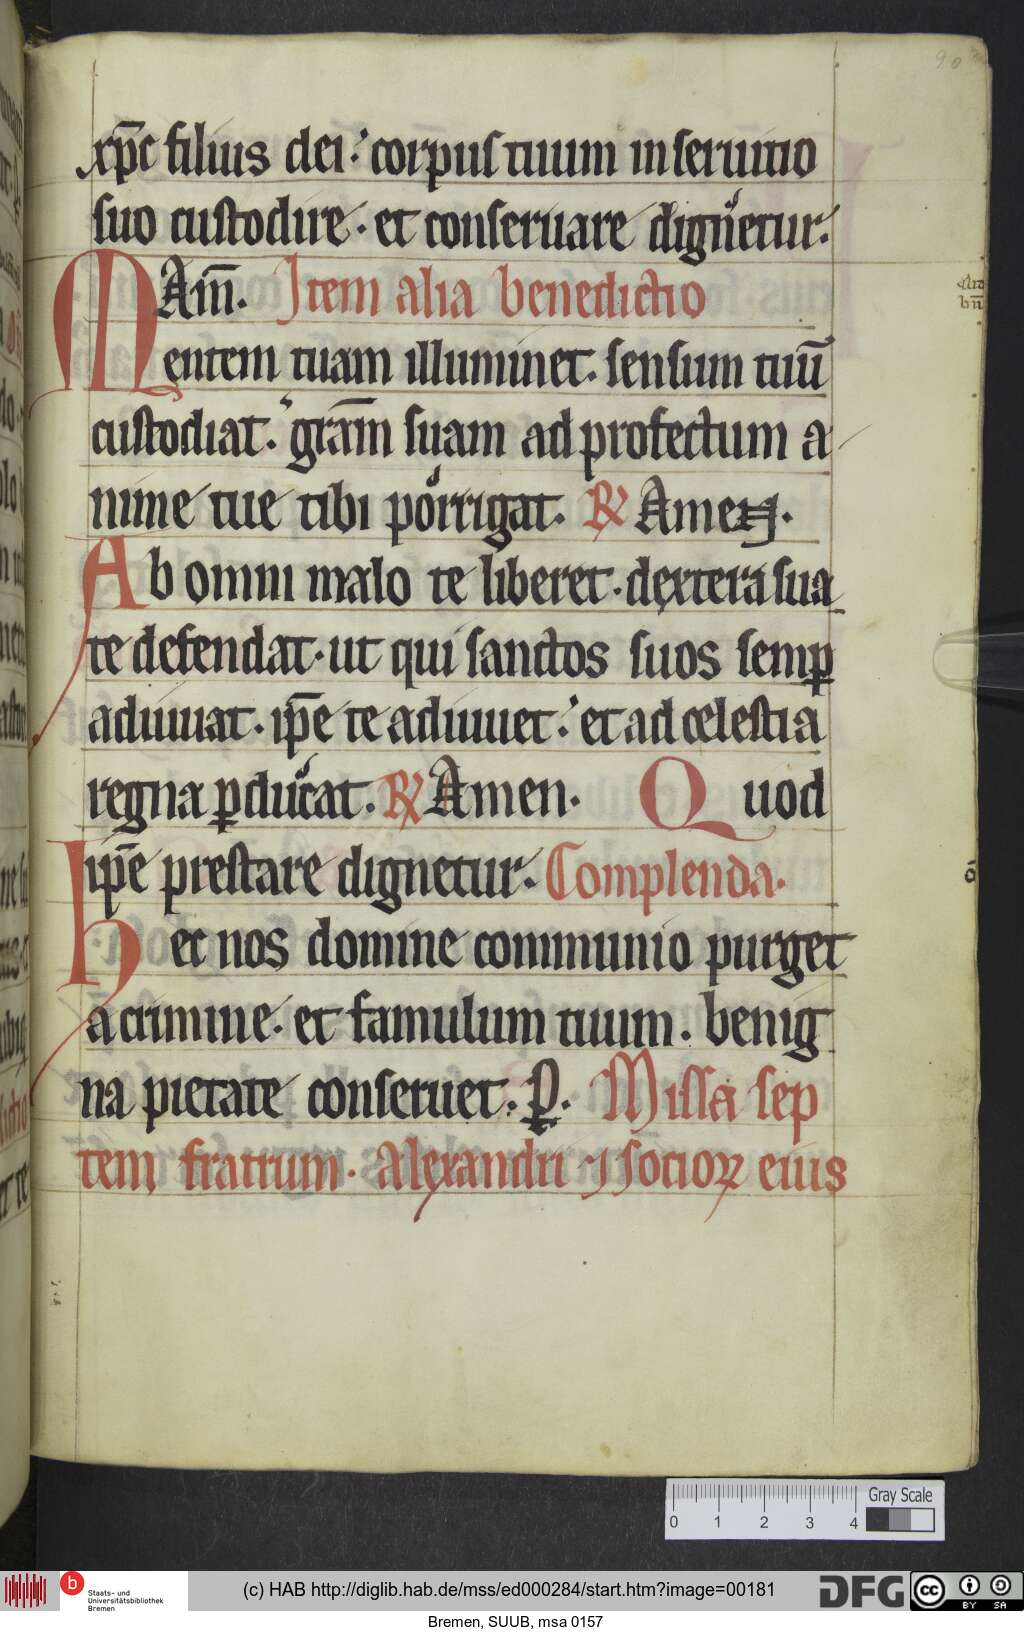 90
xp̅c filius dei. corpus tuum in seruitio
suo custodire. et conseruare dignetur.
Am̅. Item alia benedictio
Mentem tuam illuminet. sensum tuū
custodiat. gra̅m suam ad profectum a
nime tue tibi porrigat. ℟ Amen.
Ab omni malo te liberet. dextera sua
te defendat. ut qui sanctos suos semꝑ
adiuuat. ip̅e te adiuuet. et ad celestia
regna ꝑducat. ℟ Amen. Quod
ip̅e prestare dignetur. Complenda.
Hec nos domine communio purget
a crimine. et famulum tuum. benig
na pietate conseruet. P. Missa sep
tem fratrum. Alexandri ⁊ socioꝝ eius
0 1 2 3 4
Gray Scale
b Staats- und
Universitätsbibliothek
Bremen
(c) HAB http://diglib.hab.de/mss/ed000284/start.htm?image=00181
DFG
cc BY SA
Bremen, SUUB, msa 0157